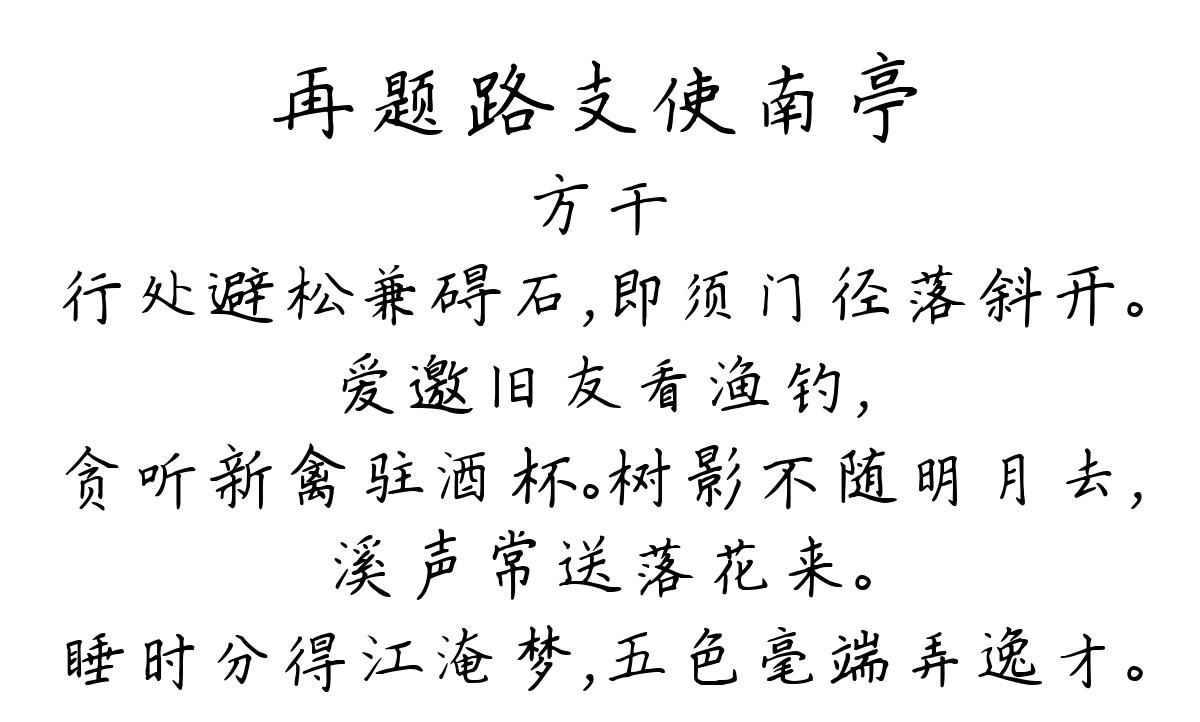 再题路支使南亭
方干
行处避松兼碍石,即须门径落斜开。
爱邀旧友看渔钓,
贪听新禽驻酒杯。树影不随明月去,
溪声常送落花来。
睡时分得江淹梦,五色毫端弄逸才。